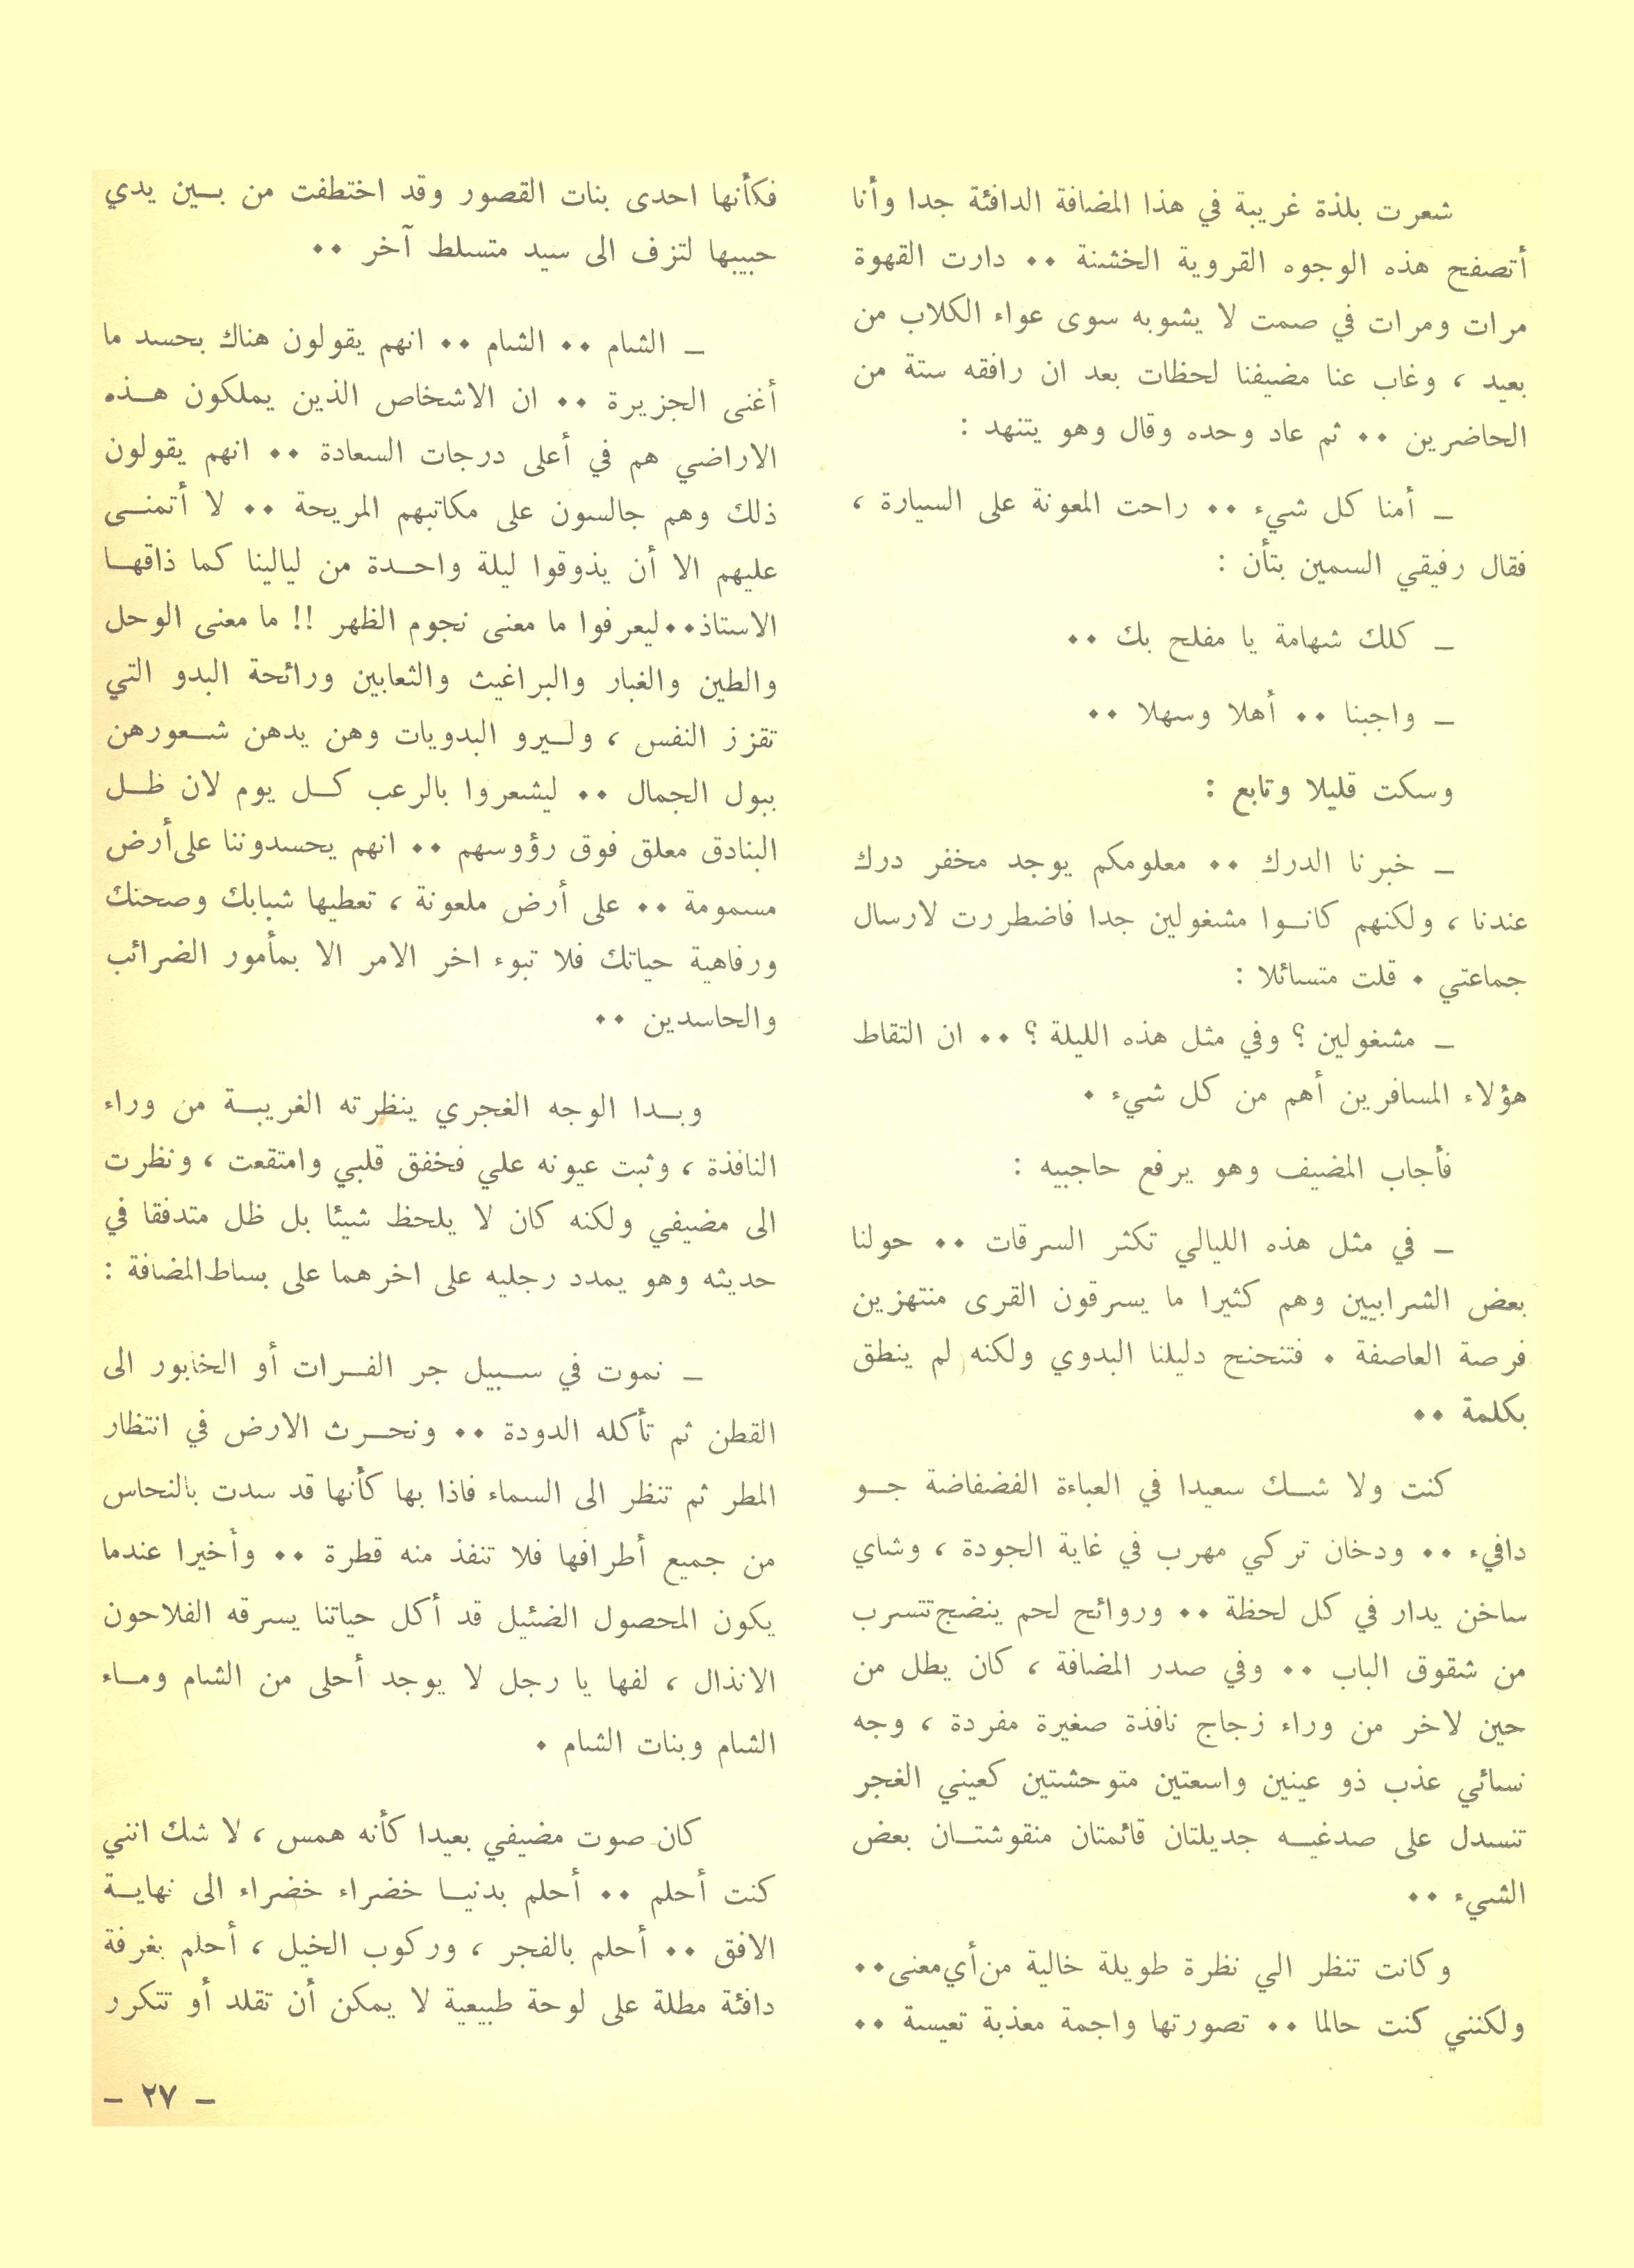 شعرت بلذة غريبة في هذا المضافة الدافئة جدا وأنا
أتصفح هذه الوجوه القروية الخشنة ٠٠ دارت القهوة
مرات ومرات في صمت لا يشوبه سوى عواء الكلاب من
بعيد ، وغاب عنا مضيفنا لحظات بعد ان رافقه ستة من
الحاضرين ٠٠ ثم عاد وحده وقال وهو يتنهد :
ـ أمنا كل شيء ٠٠ راحت المعونة على السيارة ،
فقال رفيقي السمين بتأن :
ـ كلك شهامة يا مفلح بك ٠٠
ـ واجبنا ٠٠ أهلا وسهلا ٠٠
وسكت قليلا وتابع :
ـ خبرنا الدرك ٠٠ معلومكم يوجد مخفر درك
عندنا ، ولكنهم كانوا مشغولين جدا فاضطررت لارسال
جماعتي ٠ قلت متسائلا :
ـ مشغولين ؟ وفي مثل هذه الليلة ؟ ٠٠ ان التقاط
هؤلاء المسافرين أهم من كل شيء ٠
فأجاب المضيف وهو يرفع حاجبيه :
ـ في مثل هذه الليالي تكثر السرقات ٠٠ حولنا
بعض الشرابيين وهم كثيرا ما يسرقون القرى منتهزين
فرصة العاصفة ٠ فتنحنح دليلنا البدوي ولكنه لم ينطق
بكلمة ٠٠
كنت ولا شك سعيدا في العباءة الفضفاضة جو
دافيء ٠٠ ودخان تركي مهرب في غاية الجودة ، وشاي
ساخن يدار في كل لحظة ٠٠ وروائح لحم ينضج تتسرب
من شقوق الباب ٠٠ وفي صدر المضافة ، كان يطل من
حين لاخر من وراء زجاج نافذة صغيرة مفردة ، وجه
نسائي عذب ذو عينين واسعتين متوحشتين كعيني الغجر
تنسدل على صدغيه جديلتان قائمتان منقوشتان بعض
الشيء ٠٠
وكانت تنظر الي نظرة طويلة خالية من أي معنى ٠٠
ولكنني كنت حالما ٠٠ تصورتها واجمة معذبة تعيسة ٠٠
فكأنها احدى بنات القصور وقد اختطفت من بين يدي
حبيبها لتزف الى سيد متسلط آخر ٠٠
ـ الشام ٠٠ الشام ٠٠ انهم يقولون هناك بحسد ما
أغنى الجزيرة ٠٠ ان الاشخاص الذين يملكون هذه
الاراضي هم في أعلى درجات السعادة ٠٠ انهم يقولون
ذلك وهم جالسون على مكاتبهم المريحة ٠٠ لا أتمنى
عليهم الا أن يذوقوا ليلة واحدة من ليالينا كما ذاقها
الاستاذ٠٠ليعرفوا ما معنى نجوم الظهر !! ما معنى الوحل
والطين والغبار والبراغيث والثعابين ورائحة البدو التي
تقزز النفس ، وليرو البدويات وهن يدهن شعورهن
ببول الجمال ٠٠ ليشعروا بالرعب كل يوم لان ظل
البنادق معلق فوق رؤوسهم ٠٠ انهم يحسدوننا على أرض
مسمومة ٠٠ على أرض ملعونة ، تعطيها شبابك وصحتك
ورفاهية حياتك فلا تبوء اخر الامر الا بمأمور الضرائب
والحاسدين ٠٠
وبدا الوجه الغجري ينظرته الغريبة من وراء
النافذة ، وثبت عيونه علي فخفق قلبي وامتقعت ، ونظرت
الى مضيفي ولكنه كان لا يلحظ شيئا بل ظل متدفقا في
حديثه وهو يمدد رجليه على اخرهما على بساط المضافة :
ـ نموت في سبيل جر الفرات أو الخابور الى
القطن ثم تأكله الدودة ٠٠ ونحرث الارض في انتظار
المطر ثم تنظر الى السماء فاذا بها كأنها قد سدت بالنحاس
من جميع أطرافها فلا تنفذ منه قطرة ٠٠ وأخيرا عندما
يكون المحصول الضئيل قد أكل حياتنا يسرقه الفلاحون
الانذال ، لفها يا رجل لا يوجد أحلى من الشام وماء
الشام وبنات الشام ٠
كان صوت مضيفي بعيدا كأنه همس ، لا شك انني
كنت أحلم ٠٠ أحلم بدنيا خضراء خضراء الى نهاية
الافق ٠٠ أحلم بالفجر ، وركوب الخيل ، أحلم بغرفة
دافئة مطلة على لوحة طبيعية لا يمكن أن تقلد أو تتكرر
ـ ٢٧ ـ